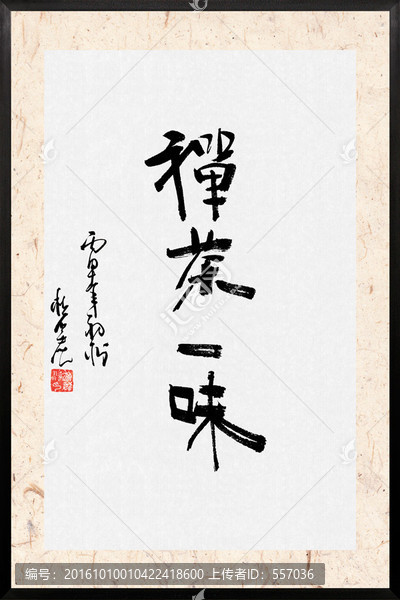 禪茶一味
丙申年初秋
编号：20161010010422418600 上传者ID：557036